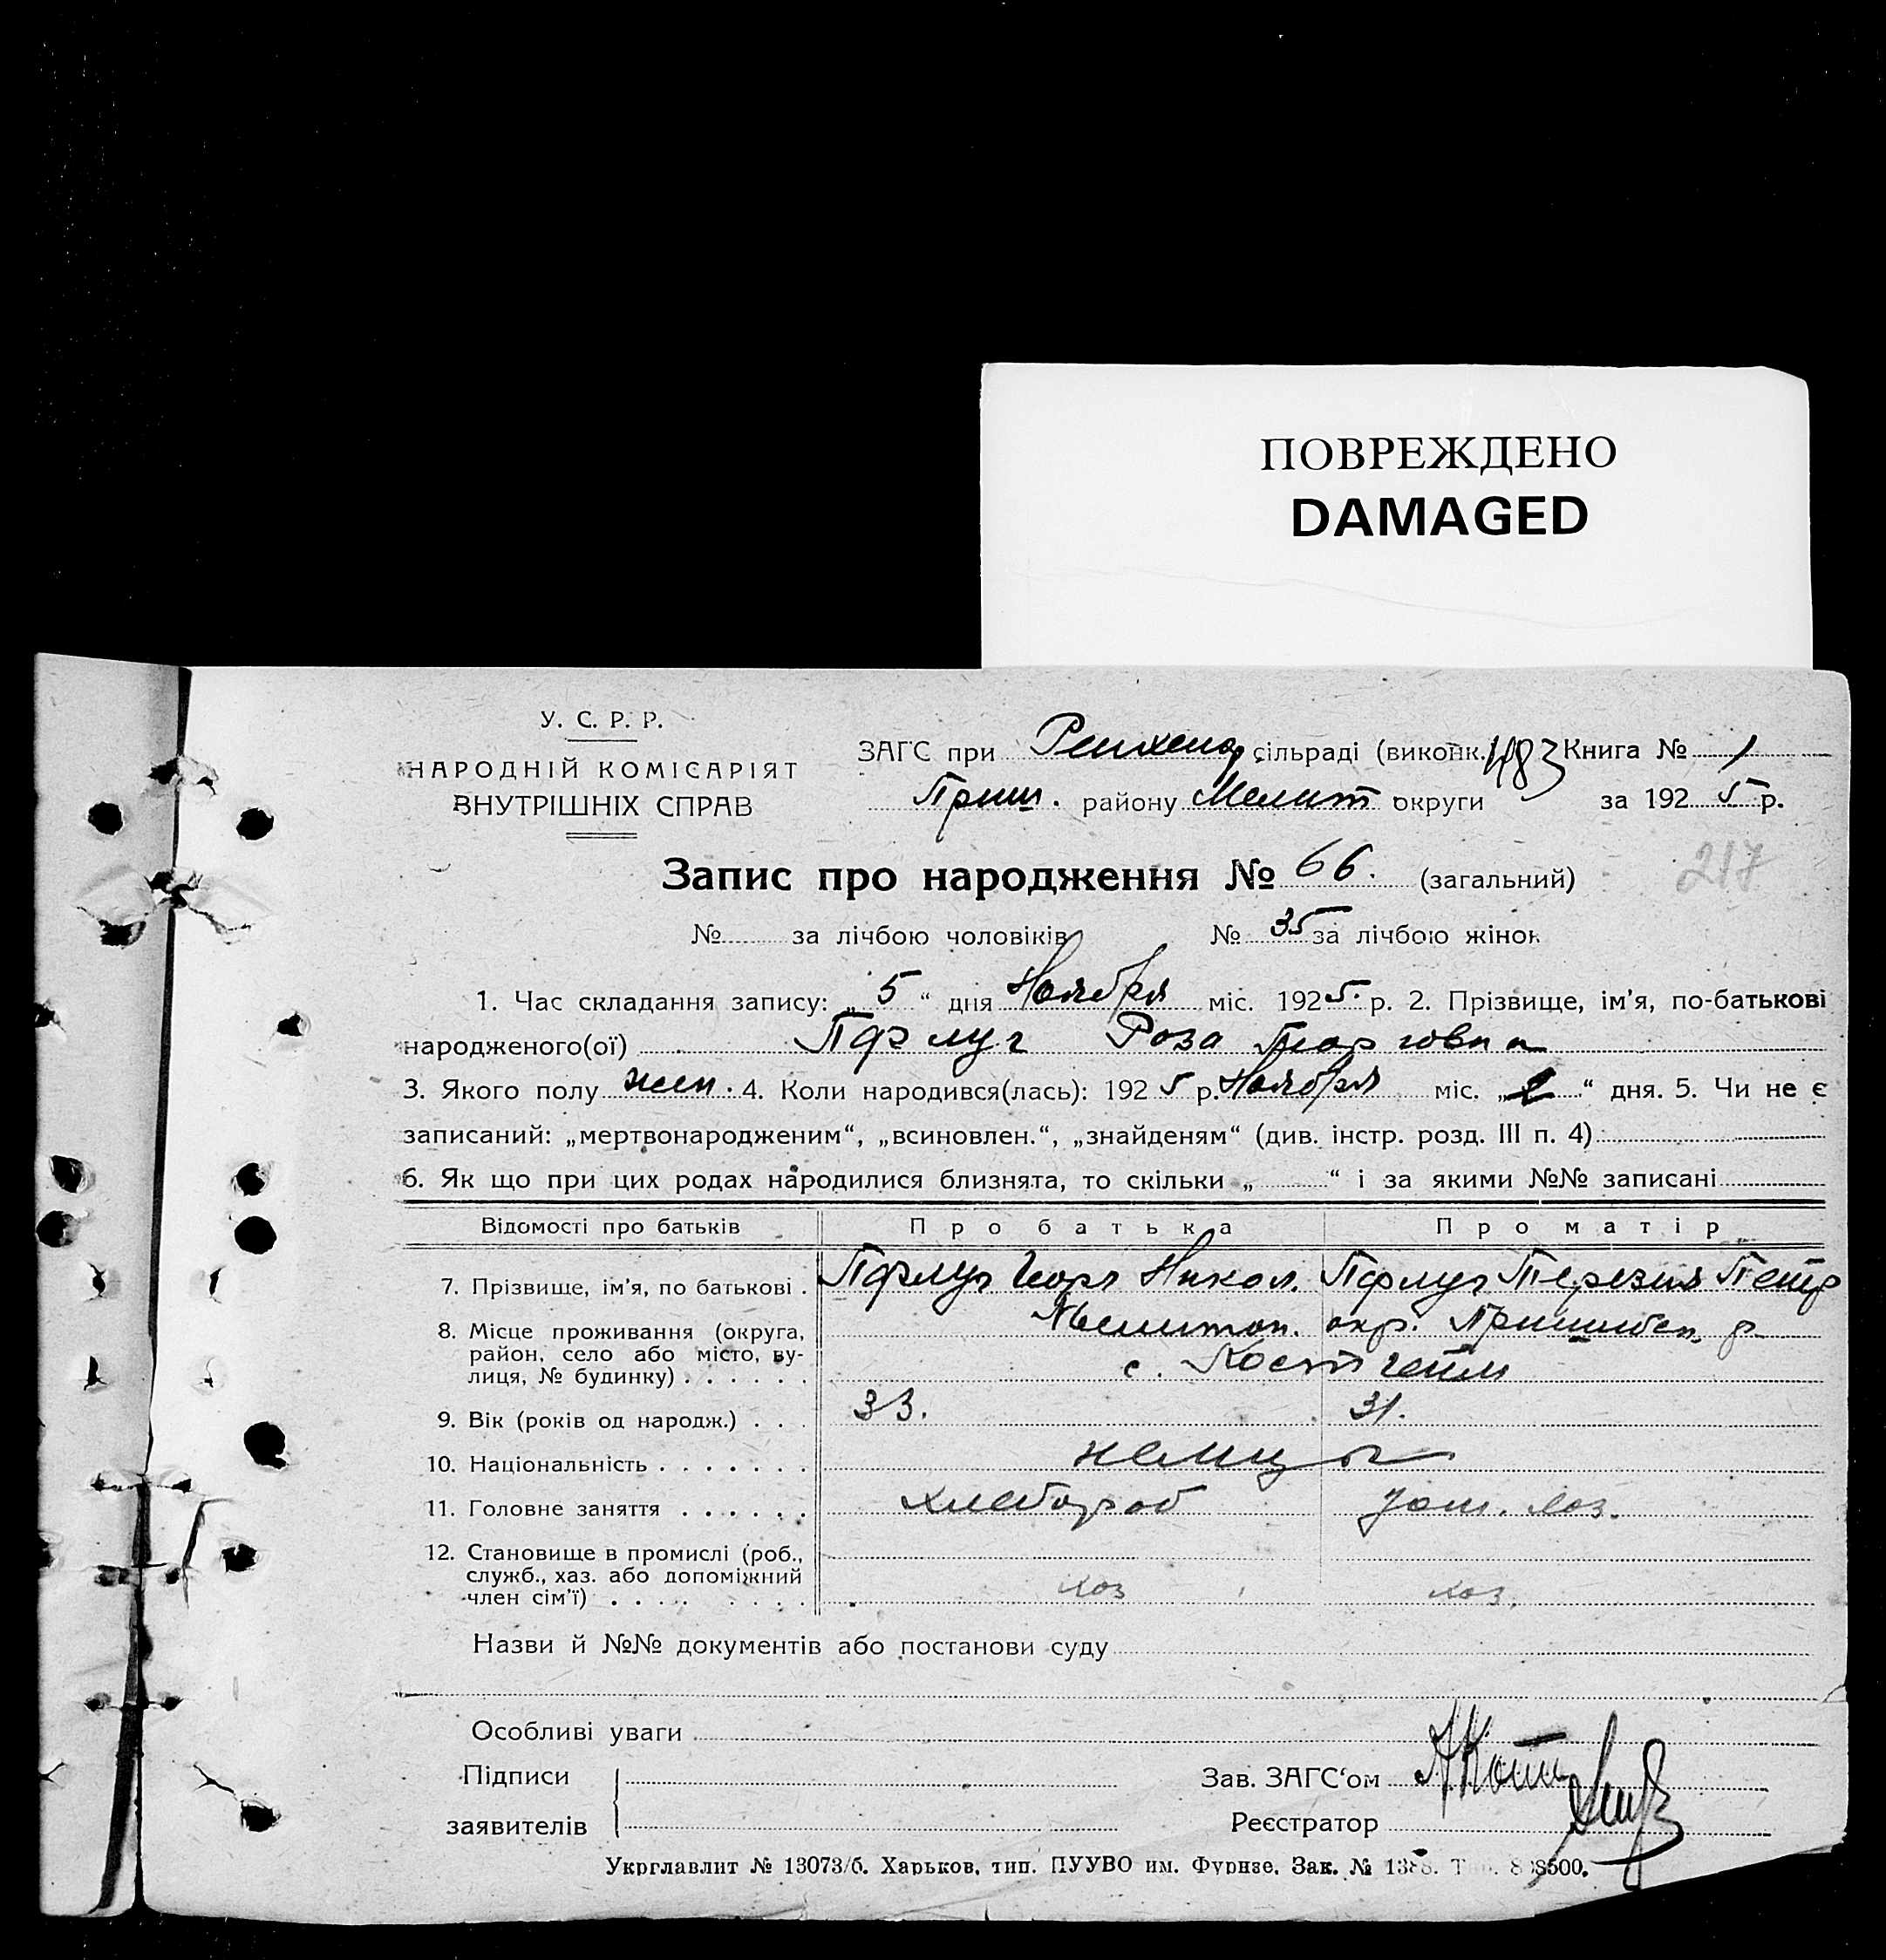 ПОВРЕЖДЕНО
DAMAGED
У. С. Р. Р.
НАРОДНІЙ КОМІСАРІЯТ
ВНУТРІШНІХ СПРАВ
ЗАГС при Рейхенф сільраді (виконк. 483 Книга № 1
Приш. району Мелит округи за 1925 р.
Запис про народження № 66. (загальний)
217
№ за лічбою чоловіків № 35 за лічбою жінок
1. Час складання запису: „5“ дня Ноября міс. 1925. р. 2. Прізвище, ім'я, по-батькові
народженого(ої) Пфлуг Роза Георговна
3. Якого полу жен. 4. Коли народився(лась): 1925 р. Ноября міс. „2“ дня. 5. Чи не є
записаний: „мертвонародженим“, „всиновлен.“, „знайденям“ (див. інстр. розд. III п. 4)
6. Як що при цих родах народилися близнята, то скільки „ “ і за якими №№ записані
Відомості про батьків Про батька Про матір
7. Прізвище, ім'я, по батькові . Пфлуг Георг Никол. Пфлуг Терезия Петр
8. Місце проживання (округа, Мелитоп. окр. Пришибсп. р.
район, село або місто, ву- с. Костгейм
лиця, № будинку) . . . . . .
9. Вік (років од народж.) . . . 33. 31.
10. Національність . . . . . . . немцы
11. Головне заняття . . . . . . хлебороб дом. хоз.
12. Становище в промислі (роб.,
служб., хаз. або допоміжний хоз хоз.
член сім'ї) . . . . . . . .
Назви й №№ документів або постанови суду
Особливі уваги
Підписи
заявителів
Зав. ЗАГС'ом
Реєстратор
Укрглавлит № 13073/б. Харьков, тип. ПУУВО им. Фрунзе. Зак. №